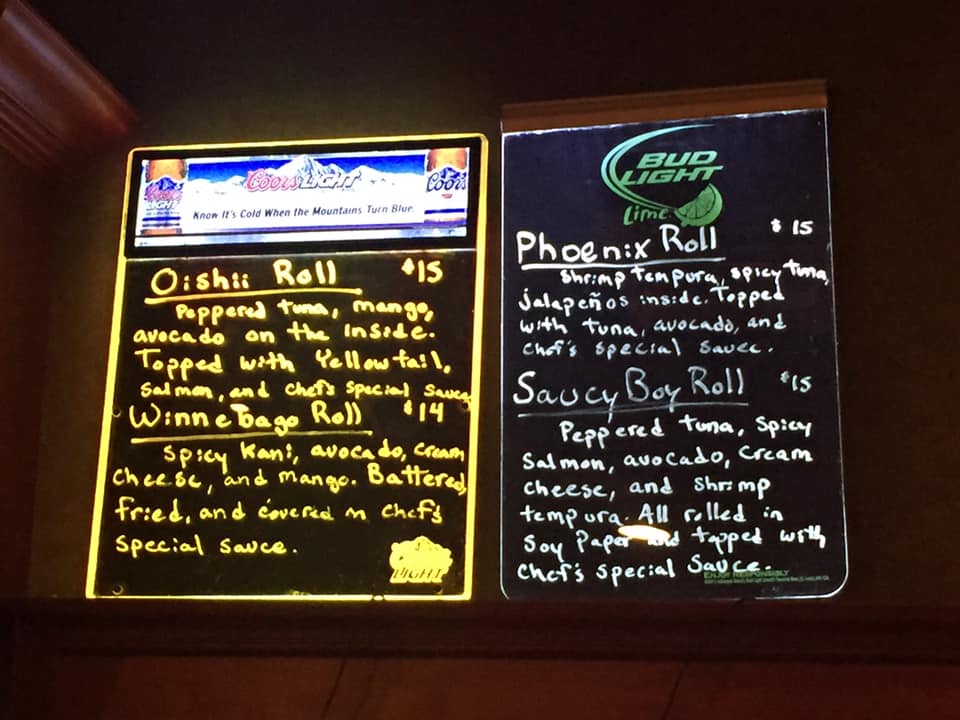 Coors LIGHT
Coors LIGHT
Coors
Know It's Cold When the Mountains Turn Blue.
Oishii Roll $15
Peppered tuna, mango,
avocado on the inside.
Topped with Yellowtail,
Salmon, and Chef's Special Sauce
Winnebago Roll $14
Spicy Kani, avocado, cream
cheese, and mango. Battered,
fried, and covered in Chef's
special sauce.
LIGHT
BUD
LIGHT
Lime
Phoenix Roll $15
Shrimp tempura, spicy tuna,
jalapeños inside. Topped
with tuna, avocado, and
Chef's special sauce.
Saucy Boy Roll $15
Peppered tuna, Spicy
Salmon, avocado, cream
cheese, and shrimp
tempura. All rolled in
Soy Paper and topped with
Chef's special Sauce.
ENJOY RESPONSIBLY